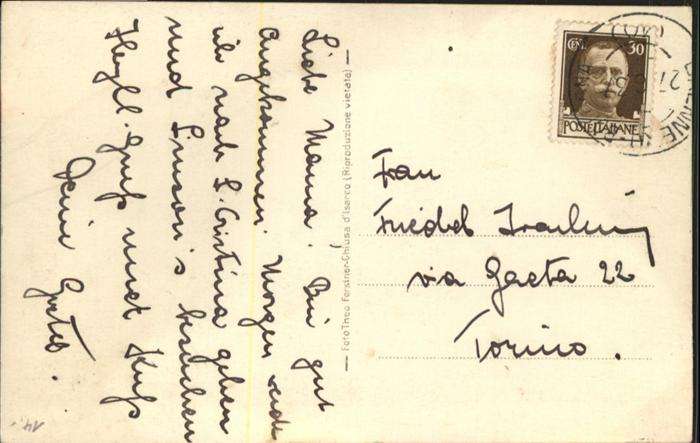 Liebe Mama! Bin gut
angekommen. Morgen werde
ich nach S. Cristina gehen
und Simson's besuchen
Herzl. Gruß und Kuß
Dein
Foto Theo Forstner-Chiusa d'Isarco (Riproduzione vietata)
CEN. 30
POSTE ITALIANE
Frau
Friedel
via Gaeta 22
Torino.
14